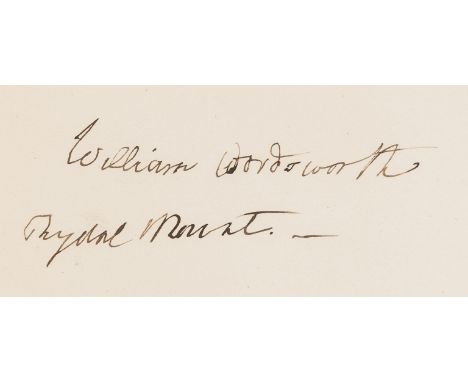 William Wordsworth
Rydal Mount. —